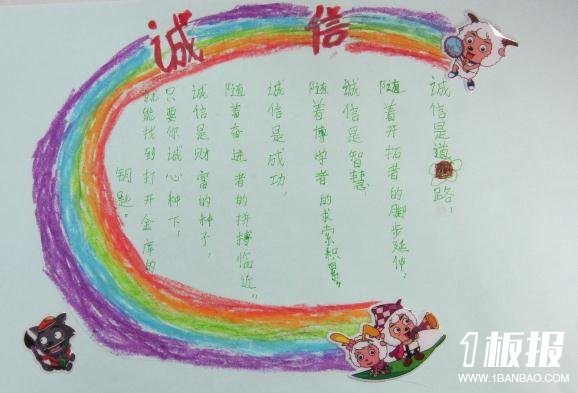 诚信
诚信是道路，
随着开拓者的脚步延伸。
诚信是智慧，
随着博学者的求索积累。
诚信是成功，
随着奋进者的拼搏临近。
诚信是财富的种子，
只要你诚心种下，
就能找到打开金库的
钥匙。
1板报
WWW.1BANBAO.COM